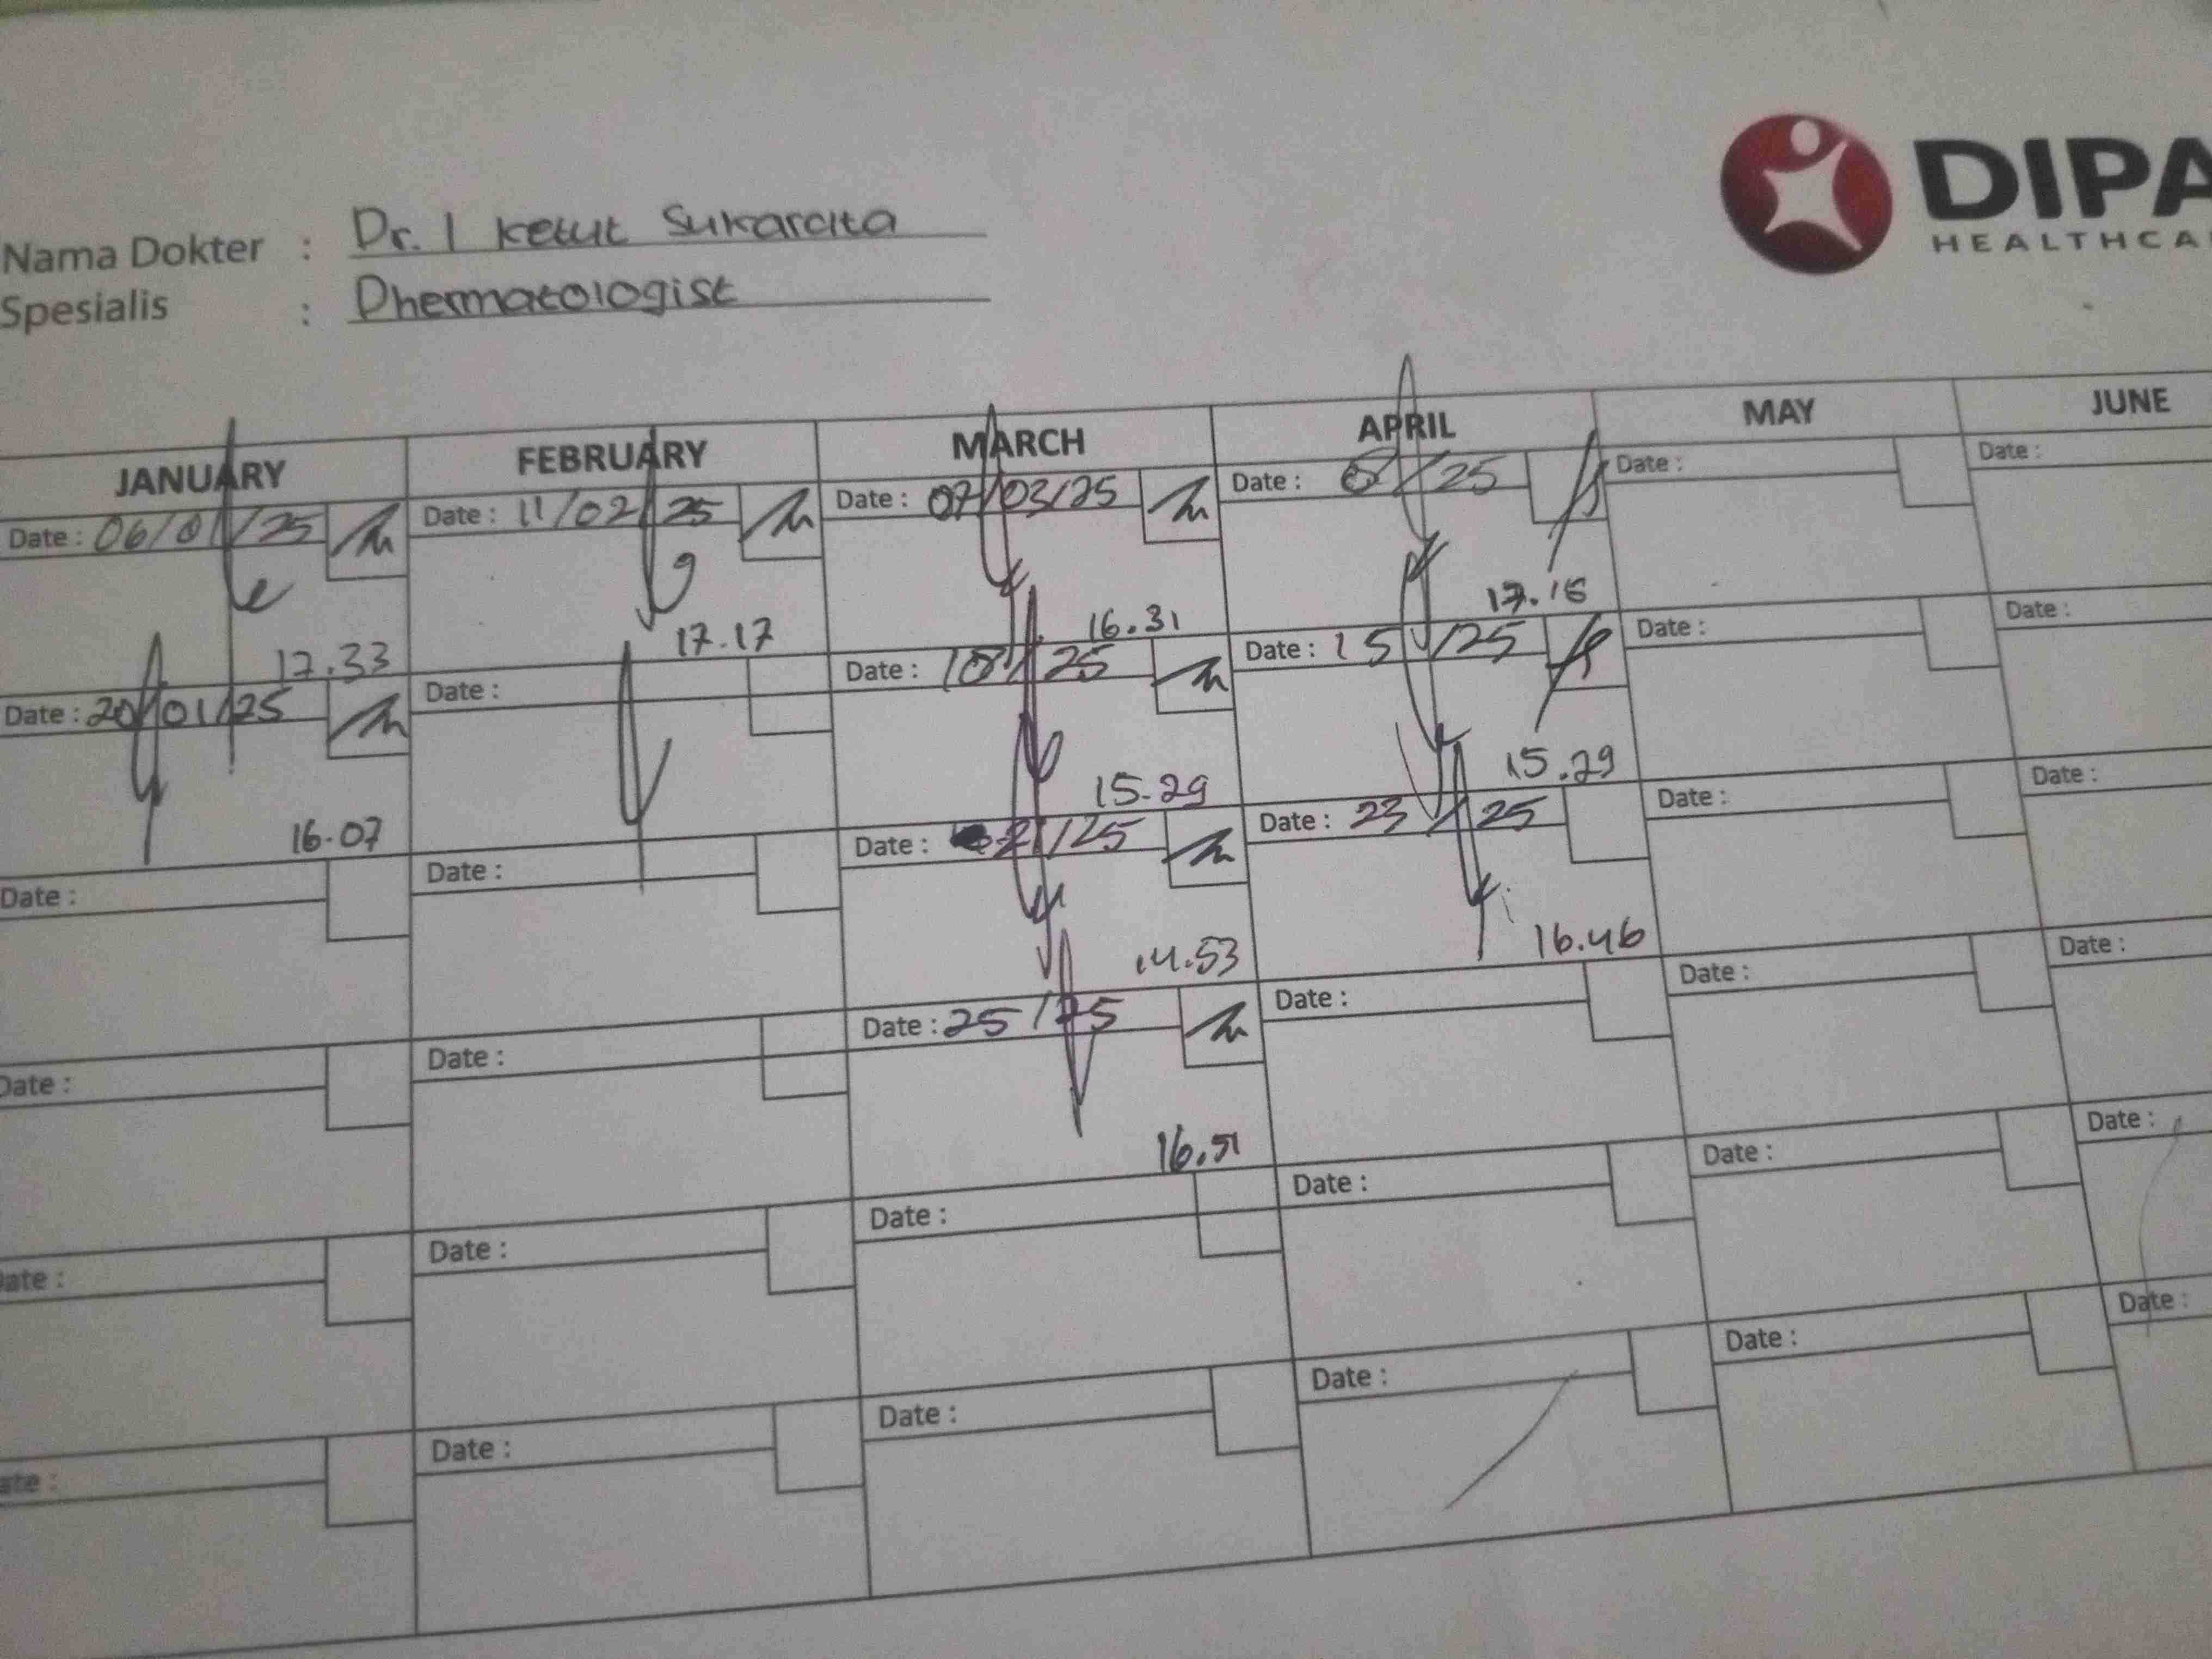 DIPA
HEALTHCA
Nama Dokter : Dr. I Ketut Sukarcita
Spesialis : Dhermatologist
JANUARY FEBRUARY MARCH APRIL MAY JUNE
Date : 06/01/25 Date : 11/02/25 Date : 07/03/25 Date : /25 Date : Date :
17.33 17.17 16.31 17.18
Date : 20/01/25 Date : Date : 10/25 Date : 15/25 Date : Date :
16.07 15.29 15.29
Date : Date : Date : 21/25 Date : 23/25 Date : Date :
14.53 16.46
Date : Date : Date : 25/25 Date : Date : Date :
16.51
ate : Date : Date : Date : Date : Date :
ate : Date : Date : Date : Date : Date :